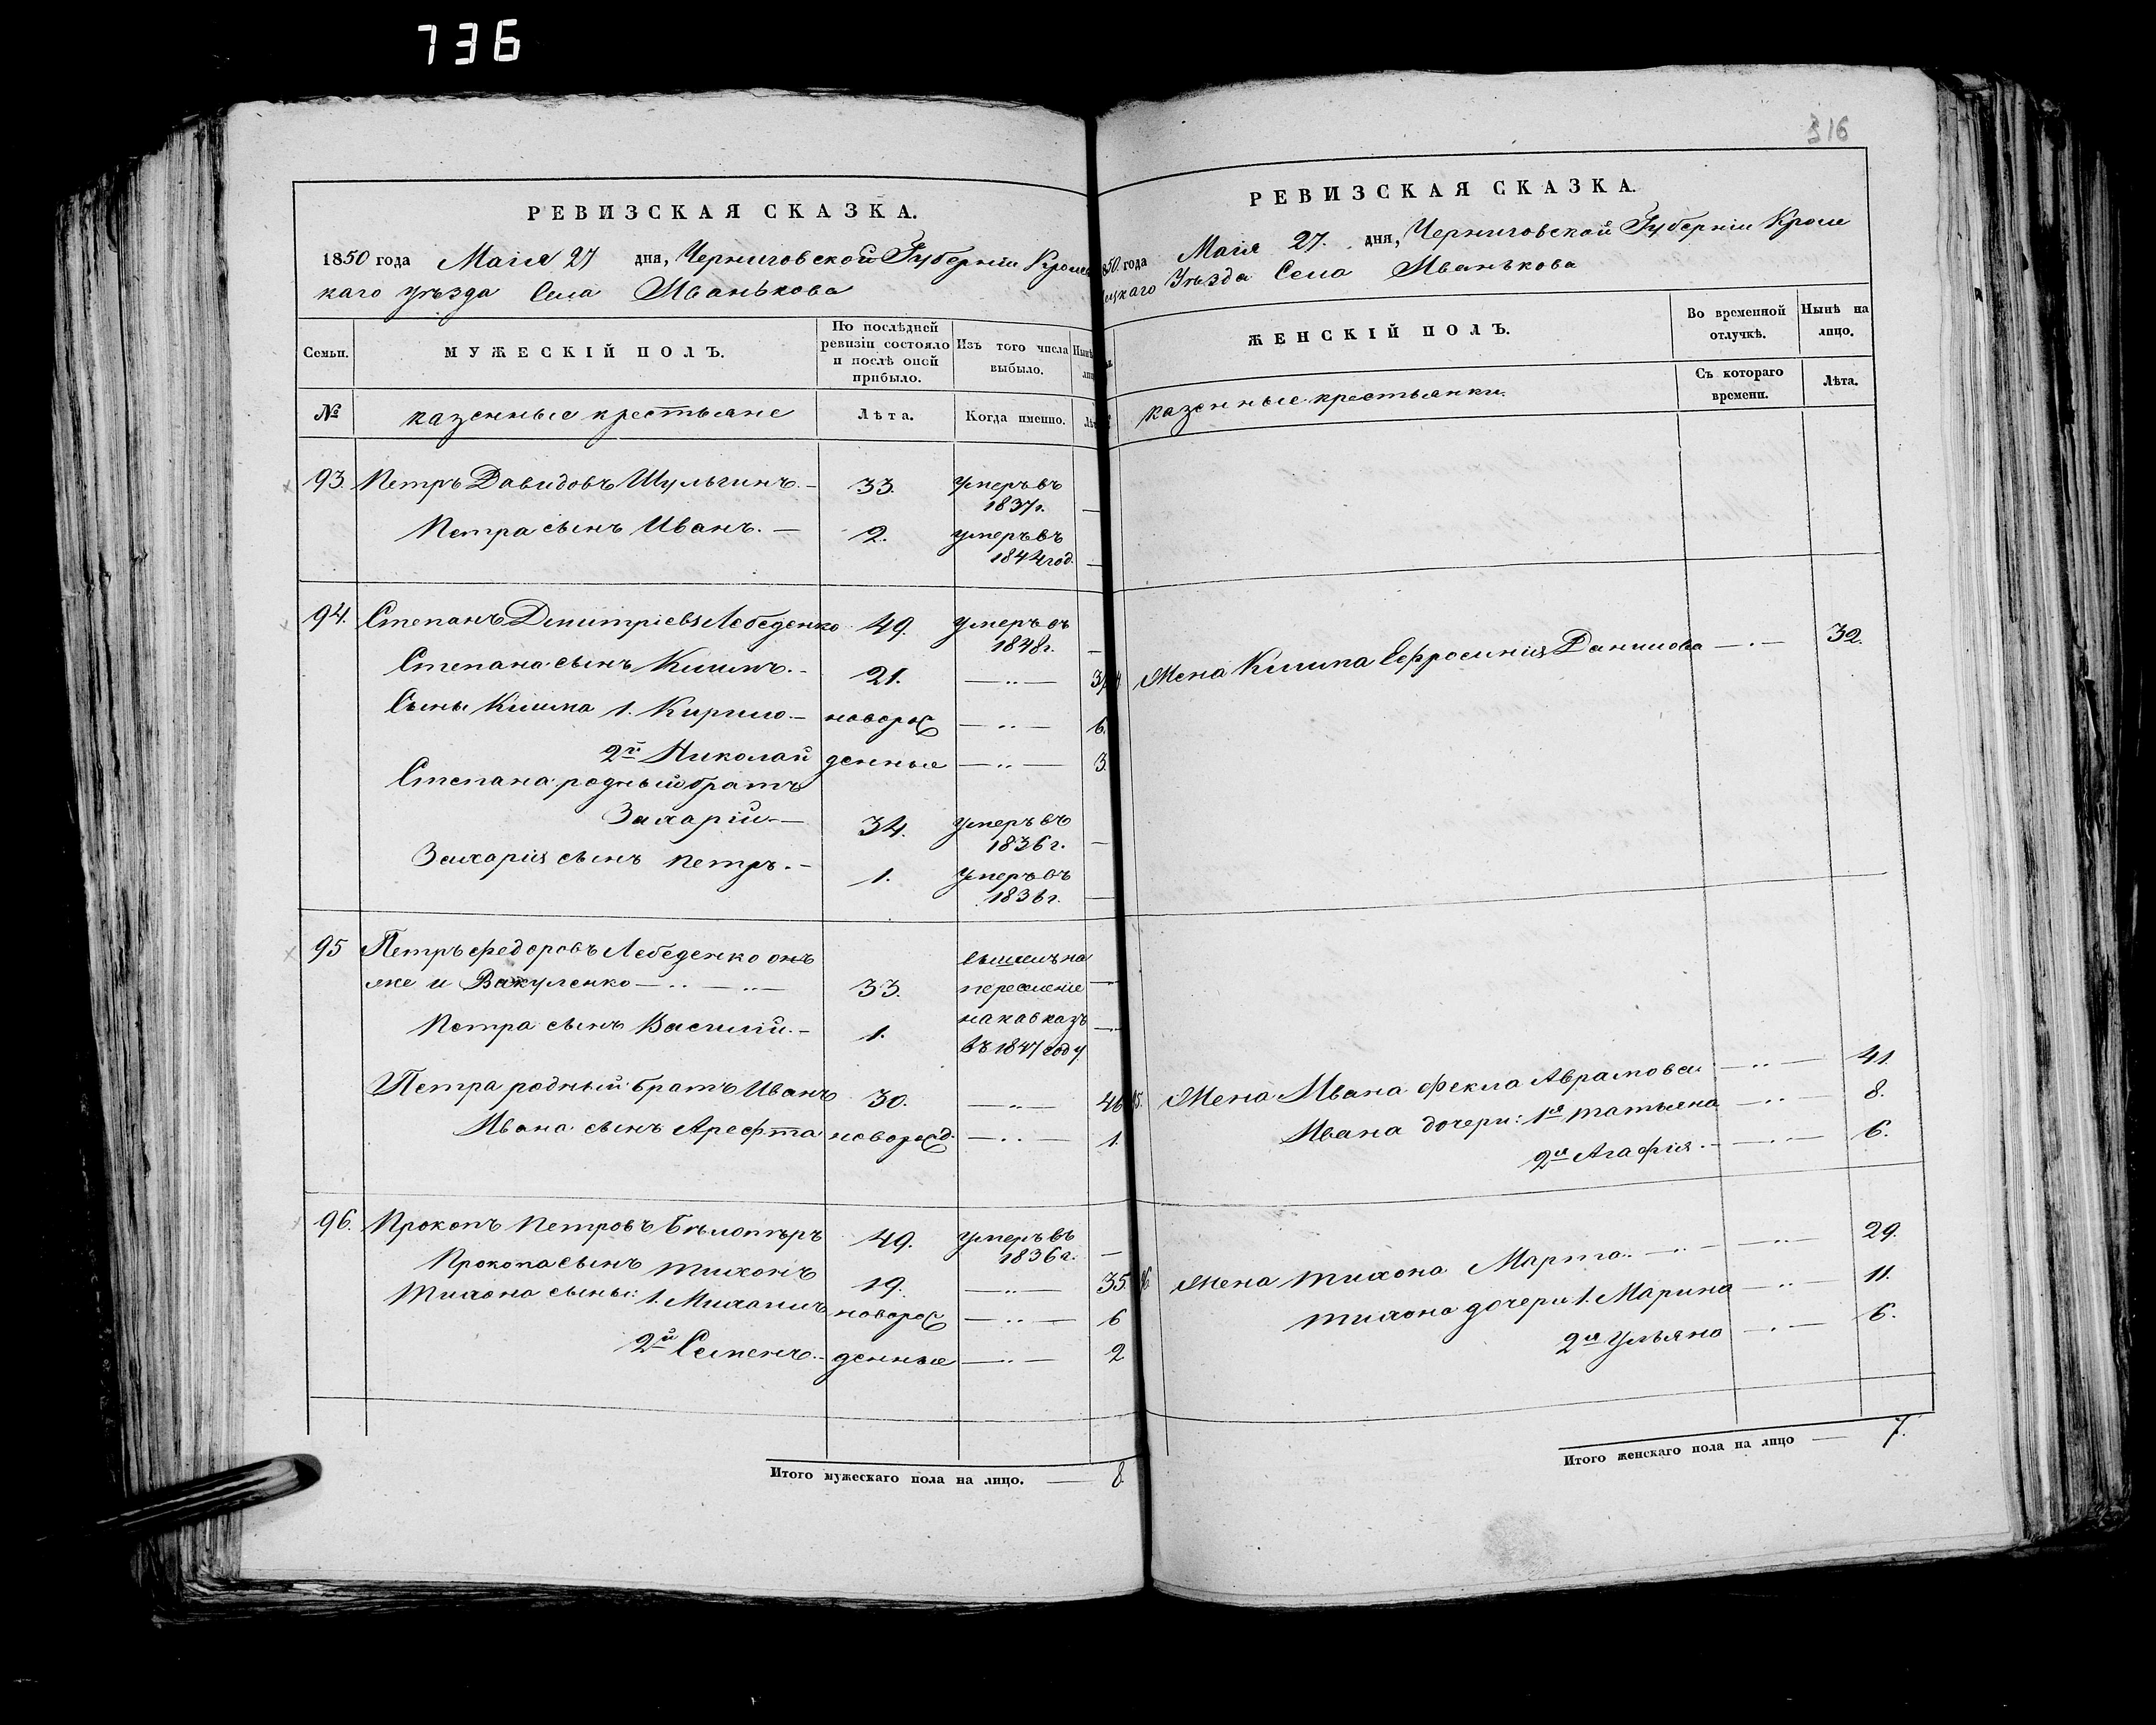 736
РЕВИЗСКАЯ СКАЗКА.
1850 года Маія 27 дня, Черниговской Губерніи Кролев
каго уѣзда Села Иванькова
Семьи.
МУЖЕСКІЙ ПОЛЪ.
По послѣдней ревизіи состояло и послѣ оной прибыло.
Изъ того числа выбыло.
№
казенные крестьяне
Лѣта.
Когда именно.
93. Петръ Давидовъ Шульгинъ. — 33. умеръ въ
1837г. —
Петра сынъ Иванъ. — 2. умеръ въ
1844 год. —
94. Степанъ Дмитріевъ Лебеденко 49. умеръ въ
1848г. —
Степана сынъ Климъ. — 21. —··—
Сыны Клима 1. Кирило — новорож —··— 6.
2й Николай денные —··— 3.
Степана родный братъ
Захарій — 34. умеръ въ
1836г. —
Захарія сынъ Петръ. — 1. умеръ въ
1836г. —
95 Петръ Федоровъ Лебеденко онъ вышелъ на
же и Вакуленко —··— —··— 33. переселеніе —
Петра сынъ Василій. — 1. на кавказъ —
въ 1847 году
Петра родный братъ Иванъ 30. —··— 46
Ивана сынъ Арефта новорожд. —··— 1.
96. Прокопъ Петровъ Бѣлотѣръ 49. умеръ въ
1836г. —
Прокопа сынъ Тихонъ 19. —··— 35.
Тихона сыны: 1. Михаилъ новорож —··— 6
2й Семенъ — денные —··— 2
Итого мужескаго пола на лицо. — 8.
316
РЕВИЗСКАЯ СКАЗКА.
850 года Маія 27. дня, Черниговской Губерніи Кроле
вецкаго Уѣзда Села Иванькова
ЖЕНСКІЙ ПОЛЪ.
Во временной отлучкѣ.
Нынѣ на лицо.
казенные крестьянки.
Съ котораго времени.
Лѣта.
Жена Клима Ефросинія Данилова —·— 32.
Жена Ивана Фекла Аврамова —··— 41.
Ивана дочери: 1я Татьяна —··— 8.
2я Агафія. —··— 6.
Жена Тихона Марта. —··— —··— 29.
Тихона дочери 1. Марина —··— 11.
2я Ульяна —·— 6.
Итого женскаго пола на лицо — 7.